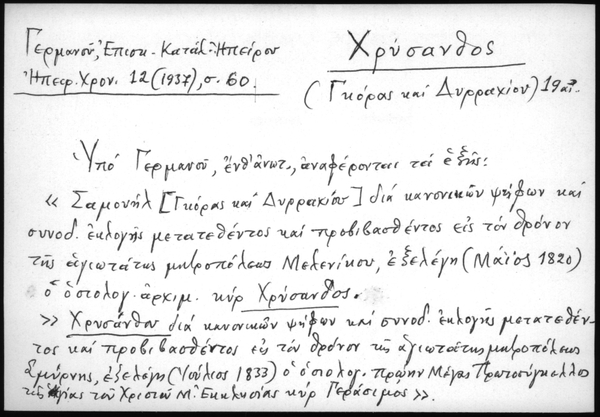 Γερμανοῦ, Ἐπισκ. Κατάλ. Ἠπείρου
Χρύσανθος
Ἠπειρ. Χρον. 12 (1937), σ. 60
(Γκόρας καί Δυρραχίου) 19 αἰ.
Ὑπό Γερμανοῦ, ἔνθ' ἀνωτ., ἀναφέρονται τά ἑξῆς:
« Σαμουήλ [Γκόρας καί Δυρραχίου] διά κανονικῶν ψήφων καί
συνοδ. ἐκλογῆς μετατεθέντος καί προβιβασθέντος εἰς τόν θρόνον
τῆς ἁγιωτάτης μητροπόλεως Μελενίκου, ἐξελέγη (Μάϊος 1820)
ὁ ὁσιολογ. ἀρχιμ. κύρ Χρύσανθος.
» Χρυσάνθου διά κανονικῶν ψήφων καί συνοδ. ἐκλογῆς μετατεθέν-
τος καί προβιβασθέντος εἰς τόν θρόνον τῆς ἁγιωτάτης μητροπόλεως
Σμύρνης, ἐξελέγη (Ἰούλιος 1833) ὁ ὁσιολογ. πρώην Μέγας Πρωτοσύγκελλος
τῆς τοῦ Χριστοῦ Μ. Ἐκκλησίας κύρ Γεράσιμος ».